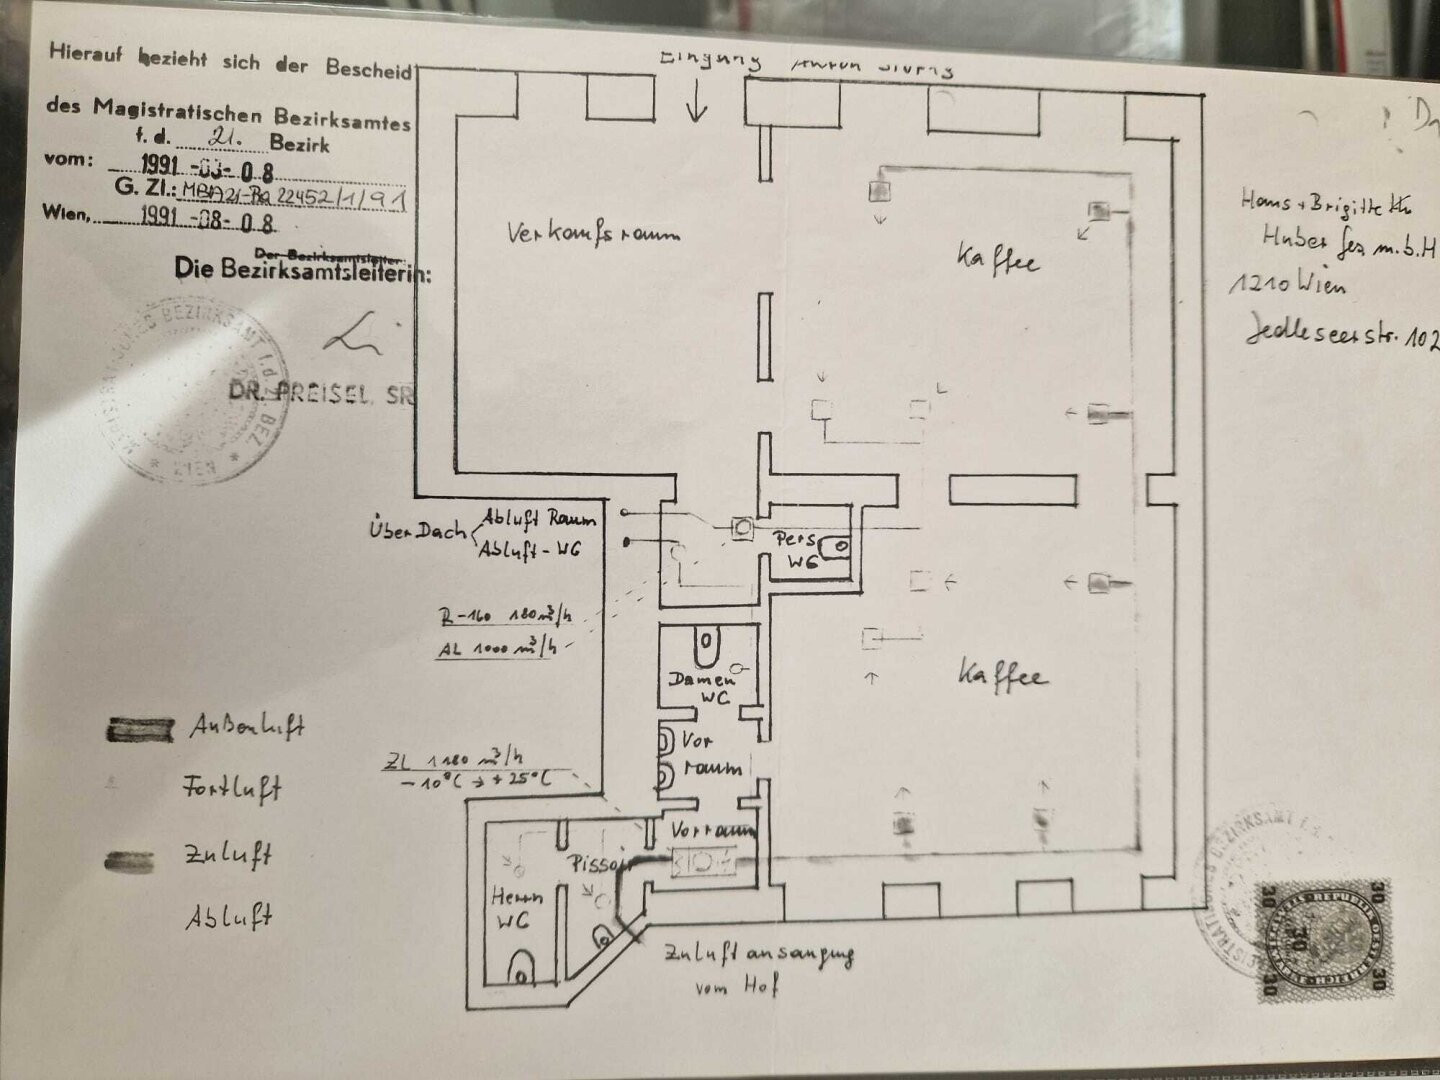 Hierauf bezieht sich der Bescheid
des Magistratischen Bezirksamtes
f. d. 21. Bezirk
vom: 1991 -03- 08
G. Zl.: MBA21-Ba 22452/1/91
Wien, 1991 -08- 08
Der Bezirksamtsleiter:
Die Bezirksamtsleiterin:
DR. PREISEL, SR
WIEN
Eingang
Verkaufsraum
Kaffee
Hans + Brigitte
Huber Ges m.b.H
1210 Wien
Jedleseerstr. 102
Über Dach
Abluft Raum
Abluft - WC
Pers
WC
R-160 180 m³/h
AL 1000 m³/h
Damen
WC
Kaffee
Außenluft
Fortluft
Zuluft
Abluft
ZL 1180 m³/h
-10°C → +25°C
Vor
raum
Vorraum
Pissoir
Herrn
WC
Zuluftansaugung
vom Hof
REPUBLIK OESTERREICH
30
30
30
30
30